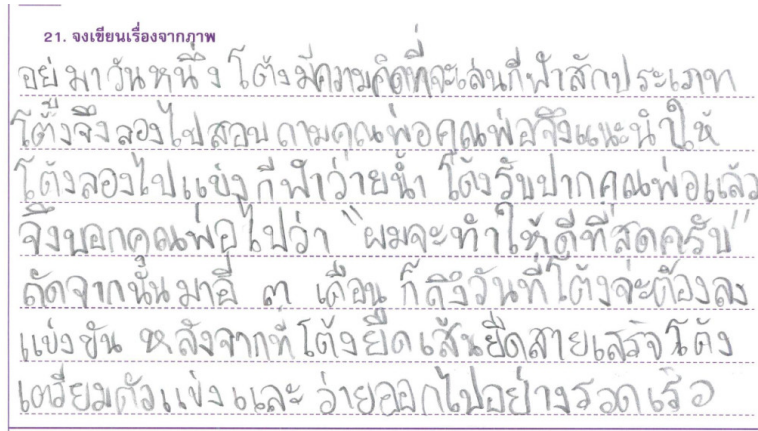 21. จงเขียนเรื่องจากภาพ
อยู่มาวันหนึ่ง โต้งมีความคิดที่จะเล่นกีฬาสักประเภท
โต้งจึงลองไปสอบถามคุณพ่อคุณพ่อจึงแนะนำให้
โต้งลองไปแข่งกีฬาว่ายน้ำ โต้งรับปากคุณพ่อแล้ว
จึงบอกคุณพ่อไปว่า "ผมจะทำให้ดีที่สุดครับ"
ถัดจากนั้นมาอี ๓ เดือน ก็ถึงวันที่โต้งจะต้องลง
แข่งขัน หลังจากที่โต้งยืดเส้นยืดสายเสร็จโต้ง
เตรียมตัวแข่งและ ว่ายออกไปอย่างรวดเร็ว